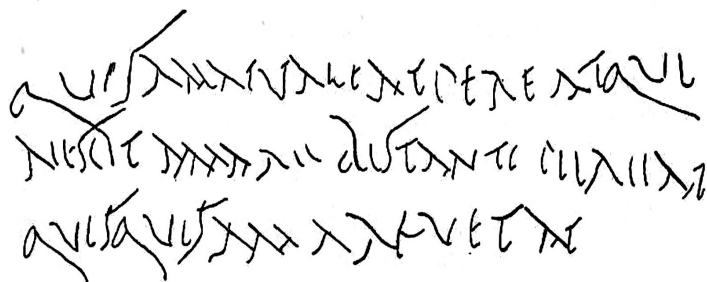 QVISAMATVALEATPEREATQVI
NESCITAMARE BISTANTI PEREAT
QVISQVISAMAREVETAT